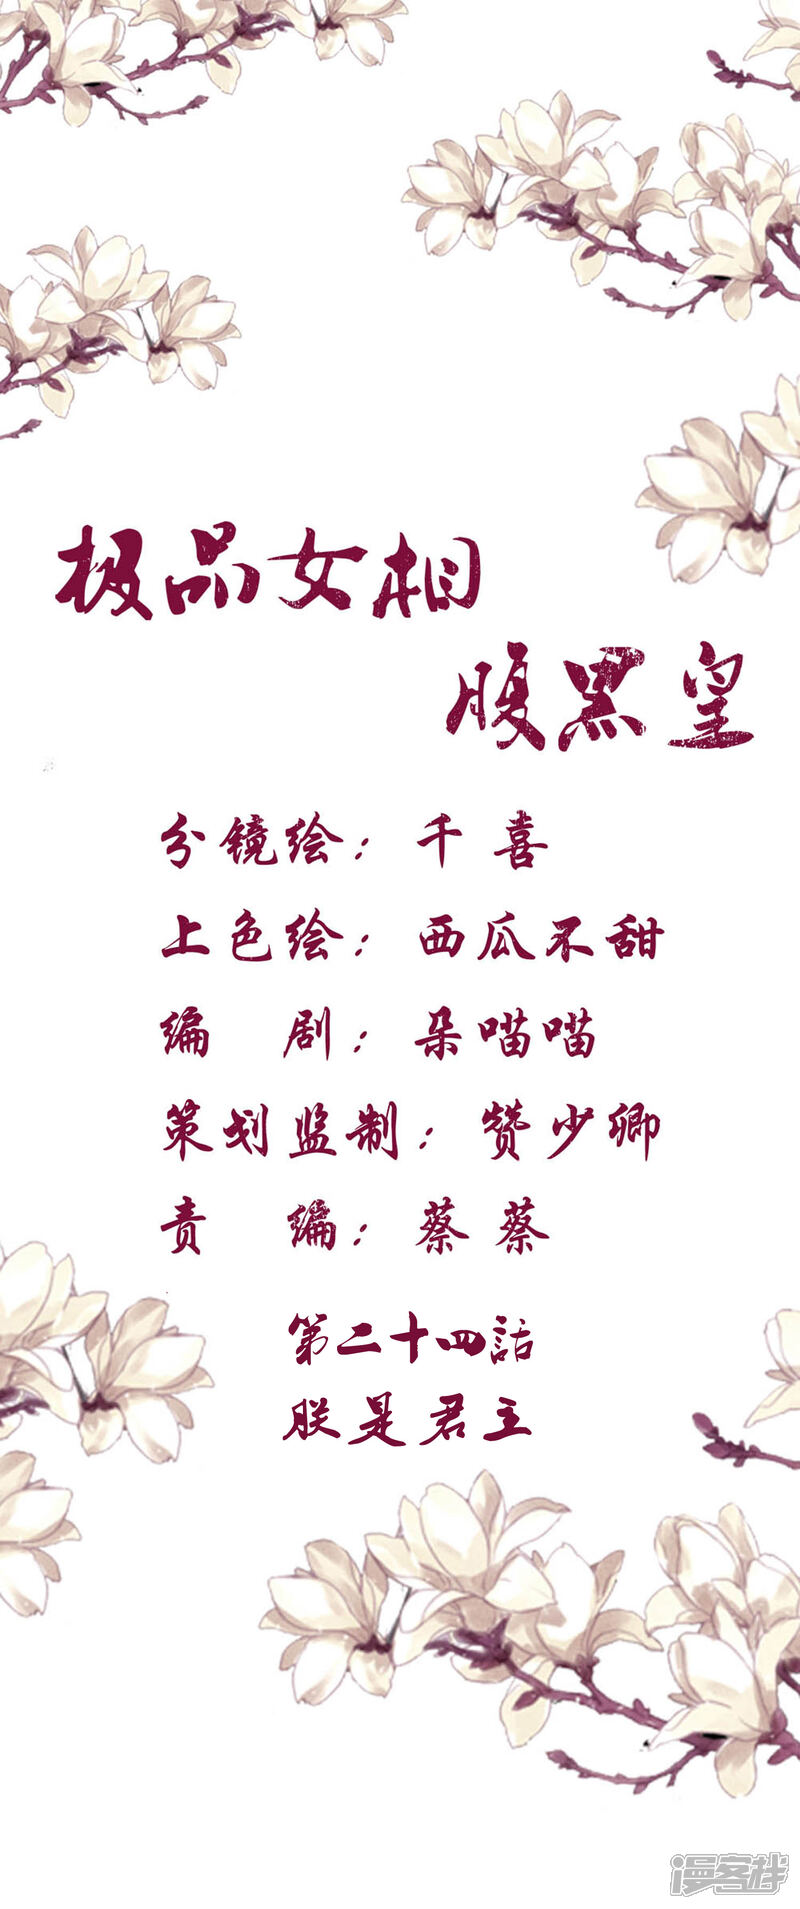 极品女相
腹黑皇
分镜绘：千喜
上色绘：西瓜不甜
编 剧：朵喵喵
策划监制：赞少卿
责 编：蔡蔡
第二十四話
朕是君主
漫客栈